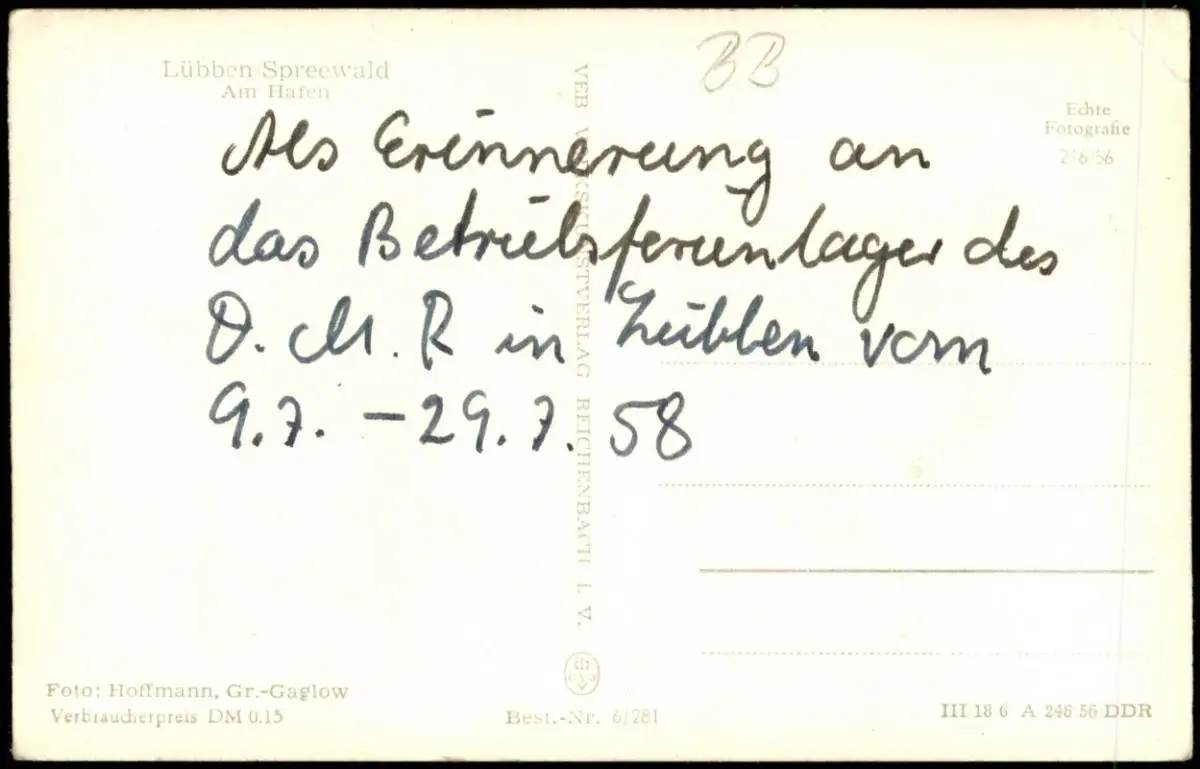 Lübben/Spreewald
Am Hafen
BB
Echte
Fotografie
246/56
Als Erinnerung an
das Betriebsferienlager des
O. M. R in Lübben vom
9.7. – 29.7. 58
VEB VOLKSKUNSTVERLAG REICHENBACH I. V.
Foto: Hoffmann, Gr.-Gaglow
Verbraucherpreis DM 0.15
Best.-Nr. 6/281
III 18 6 A 246 56 DDR